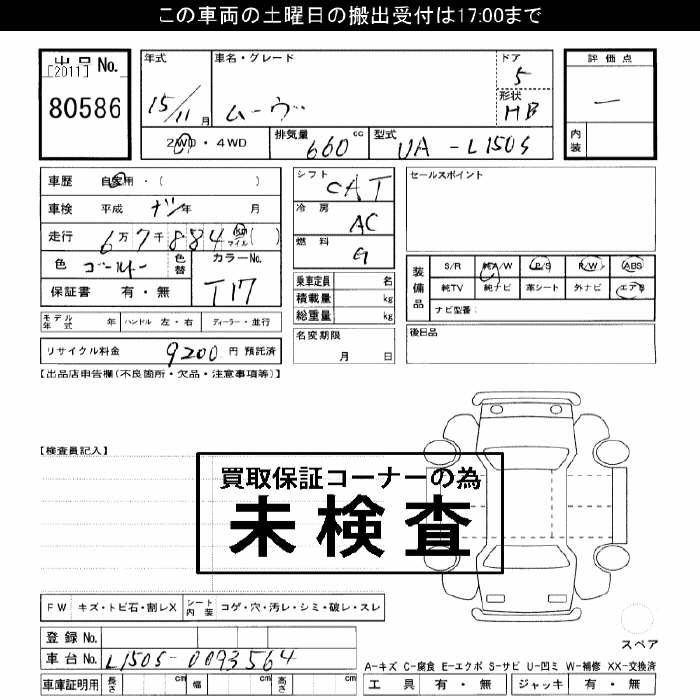 この車両の土曜日の搬出受付は17:00まで
出品 No.
[2011]
80586
年式 15/11 月
車名・グレード ムーヴ
ドア 5
形状 HB
評価点 ー
内装
2WD・4WD
排気量 660 cc
型式 UA-L150S
車歴 自家用・( )
車検 平成 ナシ 年 月
走行 6万7千884 km マイル ( )
色 ゴールド
色替
カラーNo. T17
保証書 有・無
シフト CAT
冷房 AC
燃料 G
セールスポイント
乗車定員 名
積載量 kg
総重量 kg
装備品
S/R 純A/W P/S P/W ABS
純TV 純ナビ 革シート 外ナビ エアB
ナビ型番:
モデル年式 年 ハンドル 左・右 ディーラー・並行
名変期限 月 日
後日品
リサイクル料金 9200 円 預託済
【出品店申告欄(不良箇所・欠品・注意事項等)】
【検査員記入】
買取保証コーナーの為
未検査
FW キズ・トビ石・割レX
シート内装 コゲ・穴・汚レ・シミ・破レ・スレ
登録 No.
車台No. L150S-0093564
車庫証明用 長さ cm 幅 cm 高さ cm
スペア
A-キズ C-腐食 E-エクボ S-サビ U-凹ミ W-補修 XX-交換済
工具 有・無 ジャッキ 有・無